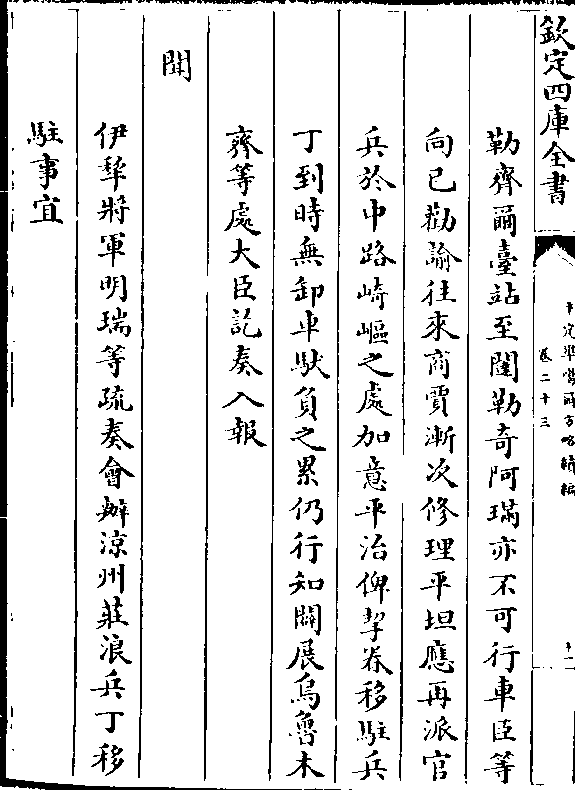 欽定四庫全書
平定準噶爾方略續編
卷二十三
十一
勒齊爾臺站至闥勒奇阿璊亦不可行車臣等
向已勸諭往來商賈漸次修理平坦應再派官
兵於中路崎嶇之處加意平治俾挈眷移駐兵
丁到時無卸車馱負之累仍行知闢展烏魯木
齊等處大臣訖奏入報
聞
伊犂將軍明瑞等疏奏會辦涼州莊浪兵丁移
駐事宜